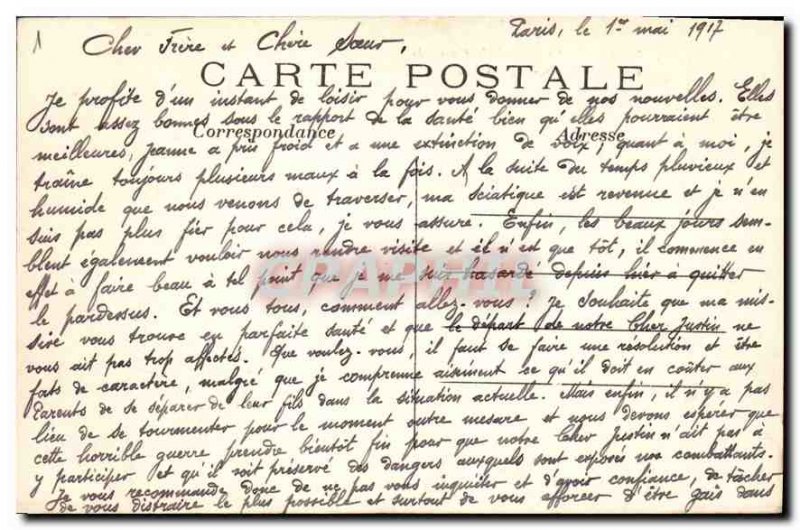 1
Paris, le 1er mai 1917
Cher Frère et Chère Sœur,
CARTE POSTALE
Je profite d'un instant de loisir pour vous donner de nos nouvelles. Elles
sont assez bonnes sous le rapport de la santé bien qu'elles pourraient être
Correspondance Adresse
meilleures, Jeanne a pris froid et a une extinction de voix; quant à moi, je
traîne toujours plusieurs maux à la fois. A la suite du temps pluvieux et
humide que nous venons de traverser, ma sciatique est revenue et je n'en
suis pas plus fier pour cela, je vous assure. Enfin, les beaux jours sem-
blent également vouloir nous rendre visite et il n'est que tôt, il commence en
effet à faire beau à tel point que je me suis hasardé depuis hier à quitter
le pardessus. Et vous tous, comment allez-vous? Je souhaite que ma mis-
sive vous trouve en parfaite santé et que le départ de notre Cher Justin ne
vous ait pas trop affectés. Que voulez-vous, il faut se faire une résolution et être
fort de caractère, malgré que je comprenne aisément ce qu'il doit en coûter aux
Parents de se séparer de leur fils dans la situation actuelle. Mais enfin, il n'y a pas
lieu de se tourmenter pour le moment outre mesure et nous devons espérer que
cette horrible guerre prendra bientôt fin pour que notre Cher Justin n'ait pas à
y participer et qu'il soit préservé des dangers auxquels sont exposés nos combattants.
Je vous recommande donc de ne pas vous inquiéter et d'avoir confiance, de tâcher
de vous distraire le plus possible et surtout de vous efforcer d'être gais dans